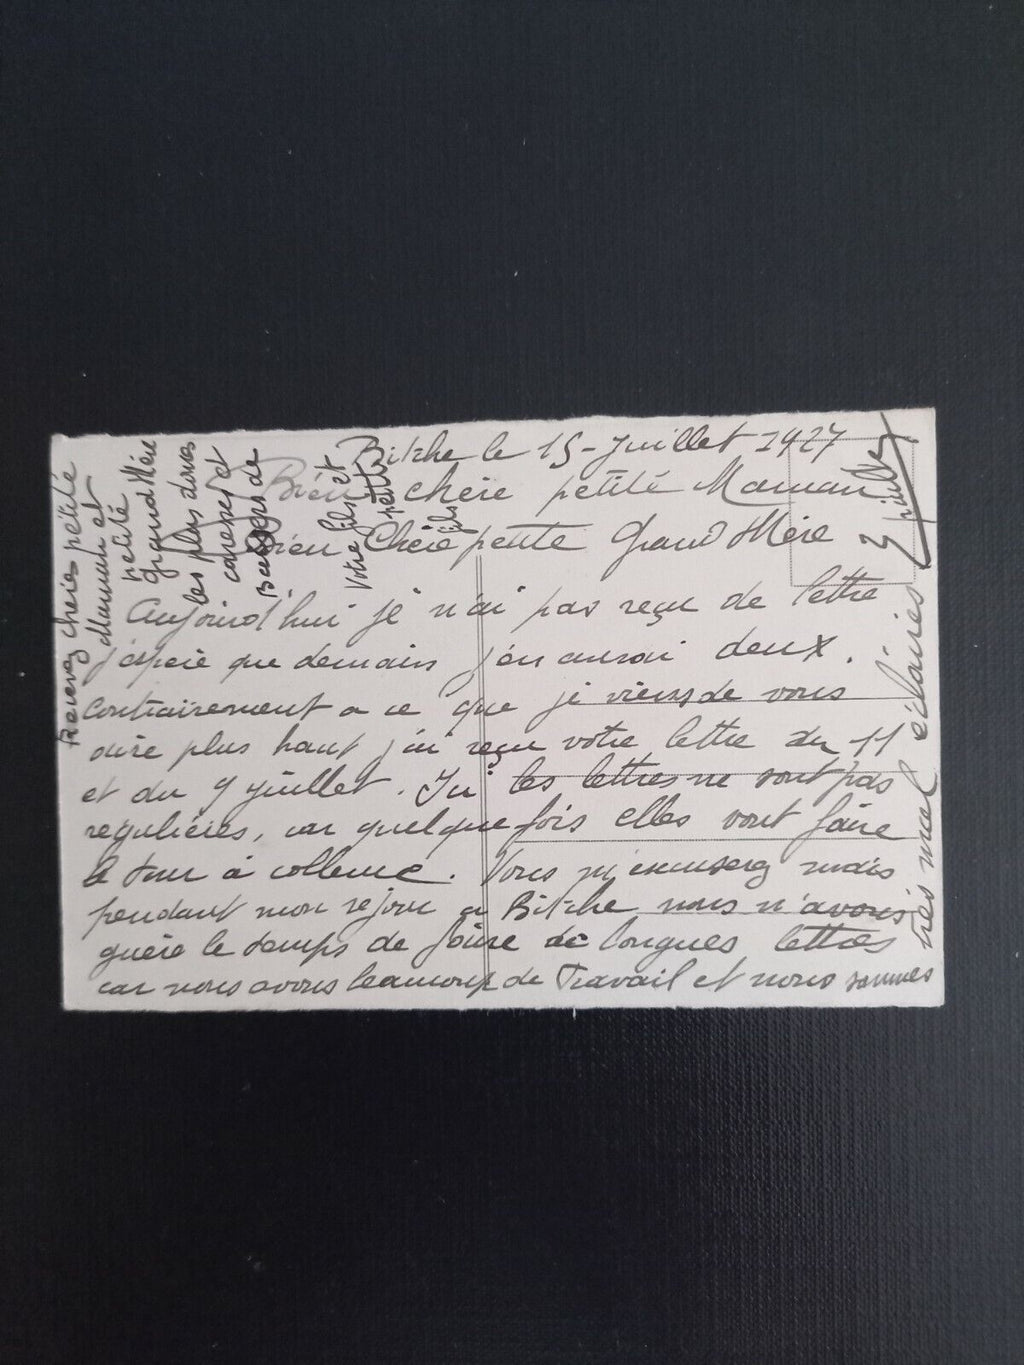 Bitche le 15 - Juillet 1927
Bien chère petite Maman
Bien Chère petite Grand Mère
Aujourd'hui je n'ai pas reçu de lettre
j'espère que demain j'en aurai deux.
Contrairement a ce que je viens de vous
dire plus haut j'ai reçu votre lettre du 11
et du 9 juillet. Ici les lettres ne sont pas
regulières, car quelque fois elles vont faire
le tour à
Vous m'excuserez mais
pendant mon sejour a Bitche nous n'avons
guère le temps de faire de longues lettres
car nous avons beaucoup de Travail et nous sommes
très mal éclairés
Recevez chères petite
Maman et
petite
grand Mère
les plus douces
caresses et
Baisers de
Votre fils et
petit
fils